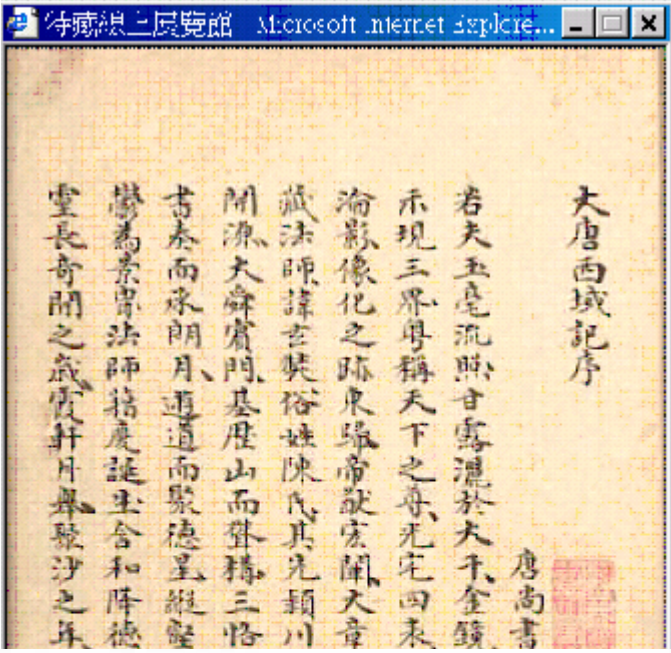 特藏線上展覽館 - Microsoft Internet Explore...
大唐西域記序
唐尚書
若夫玉毫流照甘露灑於大千金鏡
示現三界粵稱天下之尊光宅四表
淪影像化之跡東歸帝猷宏闡大章
藏法師諱玄奘俗姓陳氏其先潁川
開源大舜賓門基歷山而聳構三恪
書奏而承朗月遊道而聚德星縱壑
鬱為景胄法師籍慶誕生含和降德
靈長奇開之歲霞軒月舉聚沙之年